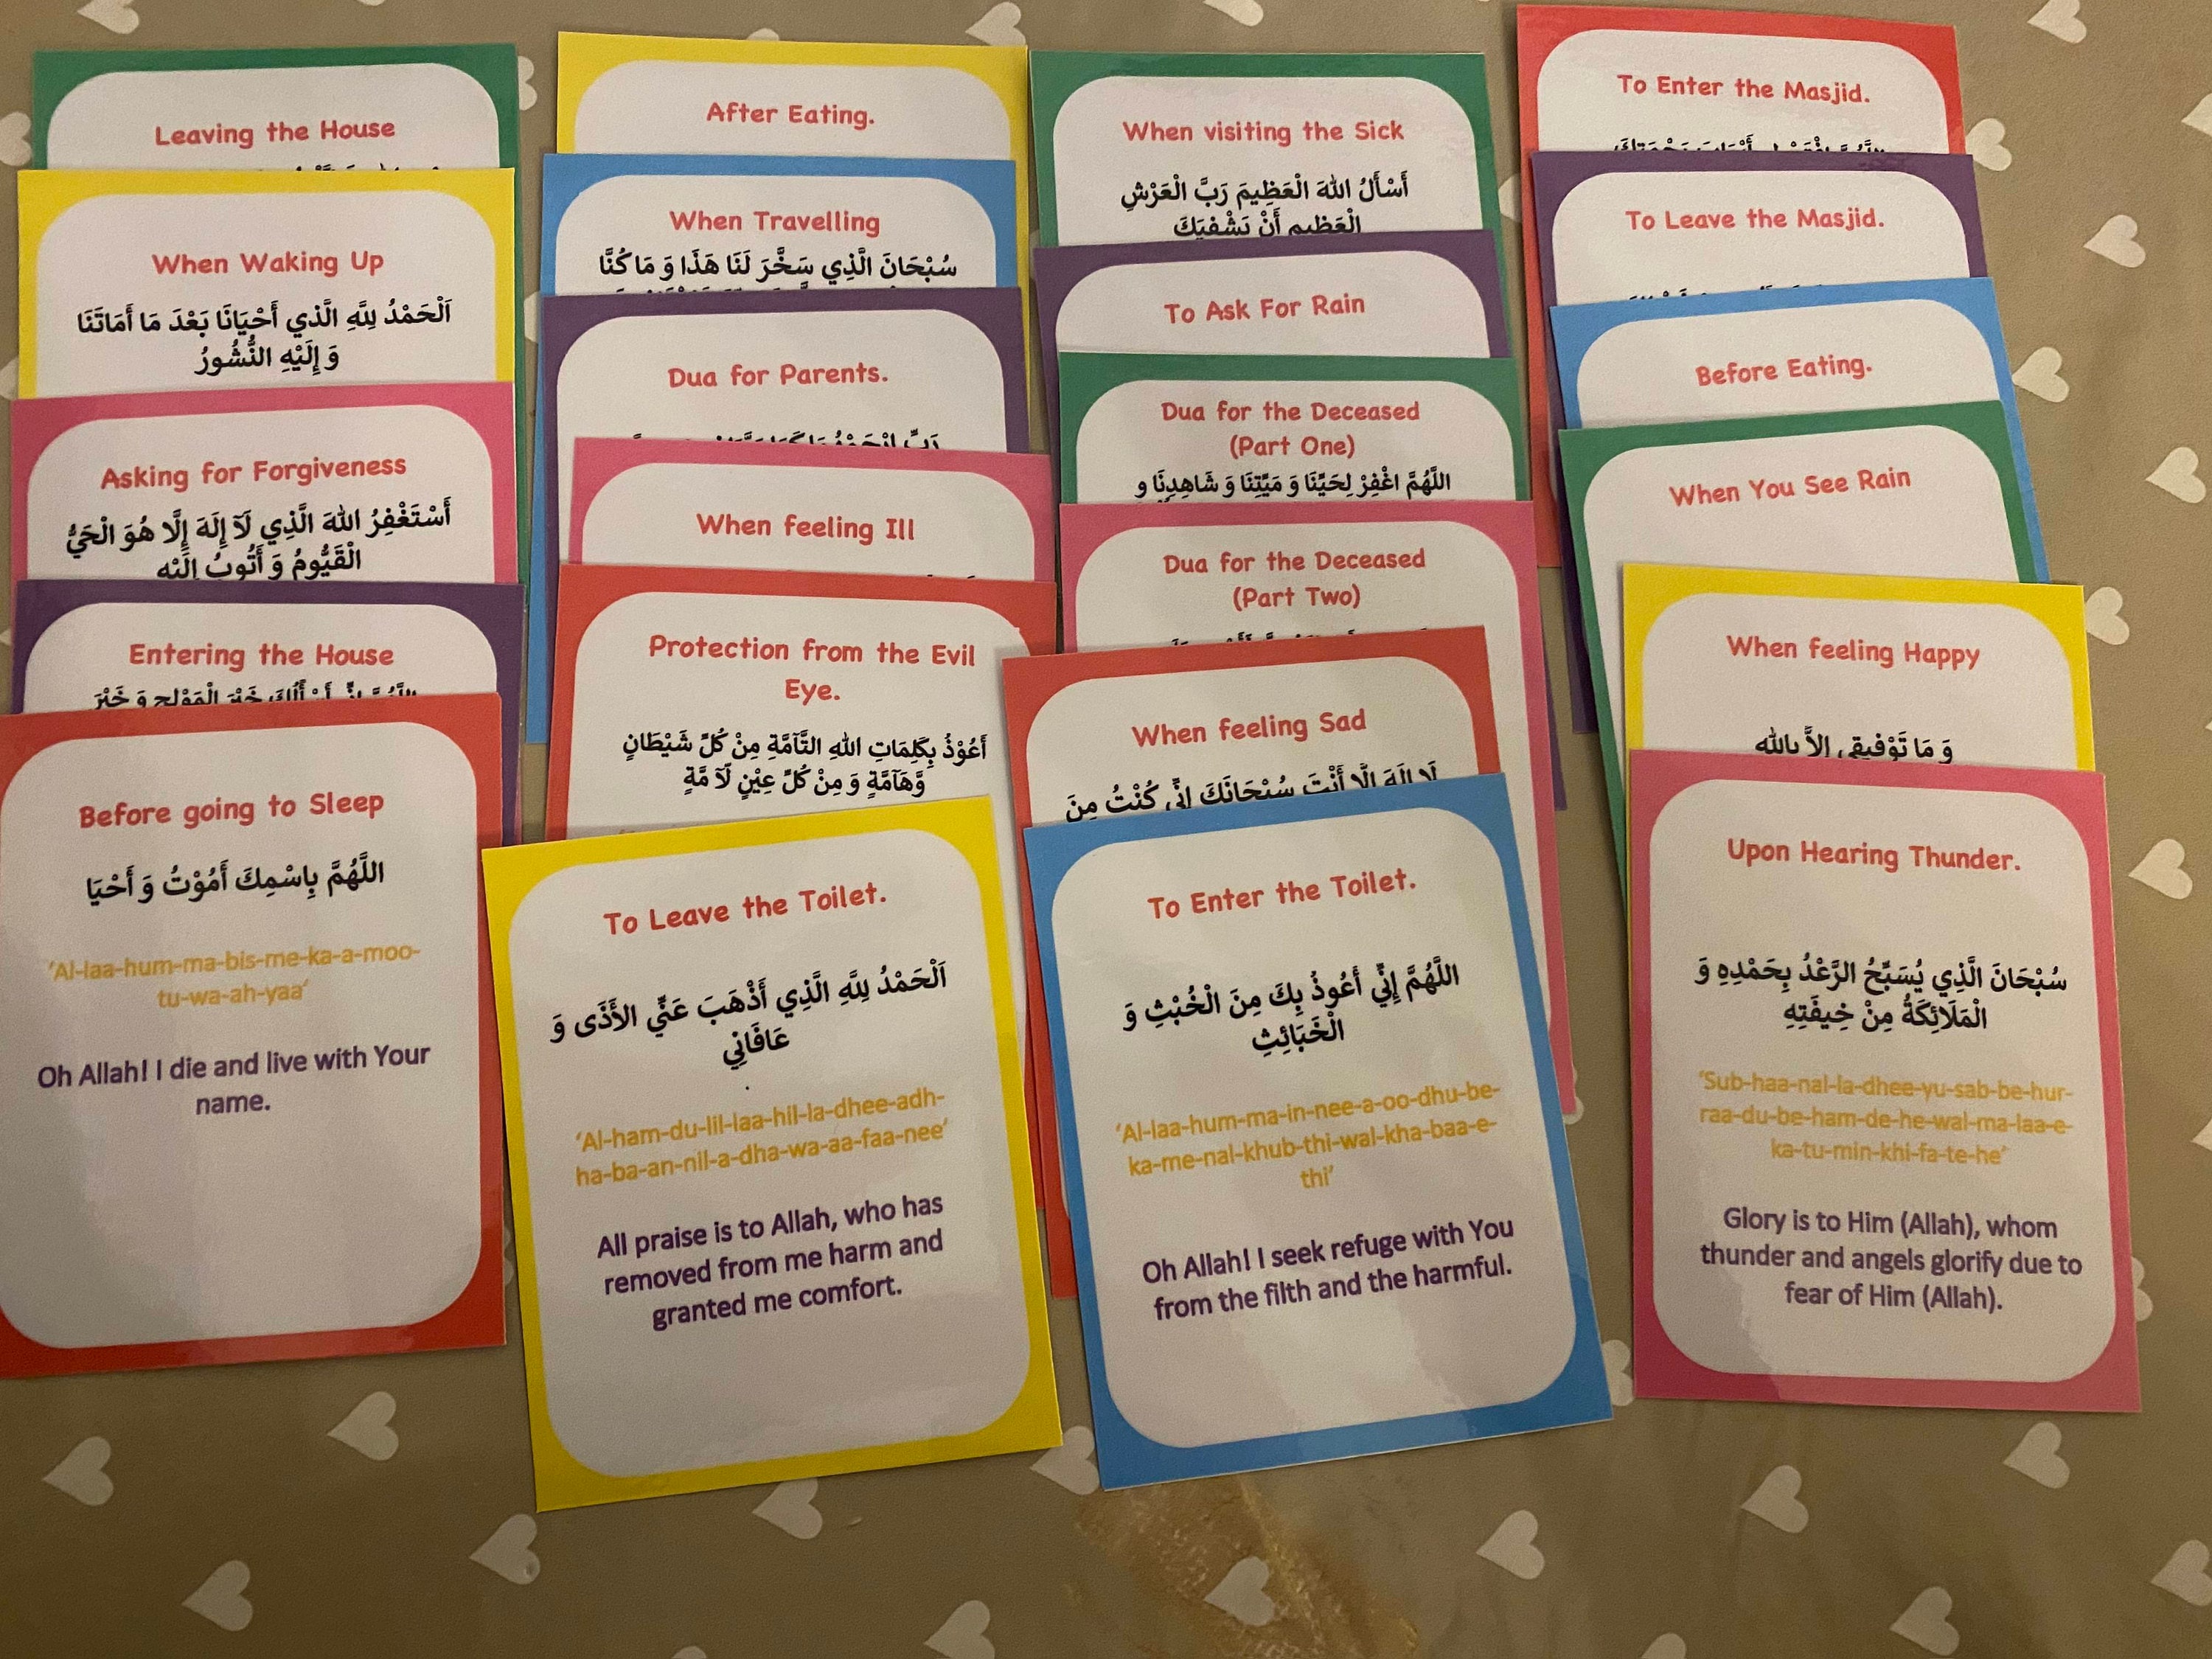 Leaving the House
When Waking Up
اَلْحَمْدُ لِلَّهِ الَّذي أَحْيَانَا بَعْدَ مَا أَمَاتَنَا
وَ إِلَيْهِ النُّشُورُ
Asking for Forgiveness
أَسْتَغْفِرُ اللهَ الَّذِي لَآ إِلَهَ إِلَّا هُوَ الْحَيُّ
الْقَيُّومُ وَ أَتُوبُ إِلَيْهِ
Entering the House
Before going to Sleep
اللَّهُمَّ بِاسْمِكَ أَمُوْتُ وَ أَحْيَا
‘Al-laa-hum-ma-bis-me-ka-a-moo-
tu-wa-ah-yaa’
Oh Allah! I die and live with Your
name.
After Eating.
When Travelling
سُبْحَانَ الَّذِي سَخَّرَ لَنَا هَذَا وَ مَا كُنَّا
Dua for Parents.
When feeling Ill
Protection from the Evil
Eye.
أَعُوْذُ بِكَلِمَاتِ اللهِ التَّآمَّةِ مِنْ كُلِّ شَيْطَانٍ
وَّهَآمَّةٍ وَ مِنْ كُلِّ عِيْنٍ لَآ مَّةٍ
To Leave the Toilet.
اَلْحَمْدُ لِلَّهِ الَّذِي أَذْهَبَ عَنِّي الأَذَى وَ
عَافَانِي
‘Al-ham-du-lil-laa-hil-la-dhee-adh-
ha-ba-an-nil-a-dha-wa-aa-faa-nee’
All praise is to Allah, who has
removed from me harm and
granted me comfort.
When visiting the Sick
أَسْأَلُ اللهَ الْعَظِيمَ رَبَّ الْعَرْشِ
الْعَظِيمِ أَنْ يَشْفِيَكَ
To Ask For Rain
Dua for the Deceased
(Part One)
اللَّهُمَّ اغْفِرْ لِحَيِّنَا وَ مَيَّتِنَا وَ شَاهِدِنَا و
Dua for the Deceased
(Part Two)
When feeling Sad
لَا إِلَهَ إِلَّا أَنْتَ سُبْحَانَكَ إِنِّي كُنْتُ مِنَ
To Enter the Toilet.
اللَّهُمَّ إِنِّي أَعُوذُ بِكَ مِنَ الْخُبْثِ وَ
الْخَبَائِثِ
‘Al-laa-hum-ma-in-nee-a-oo-dhu-be-
ka-me-nal-khub-thi-wal-kha-baa-e-
thi’
Oh Allah! I seek refuge with You
from the filth and the harmful.
To Enter the Masjid.
To Leave the Masjid.
Before Eating.
When You See Rain
When feeling Happy
وَ مَا تَوْفِيقِي إِلاَّ بِاللهِ
Upon Hearing Thunder.
سُبْحَانَ الَّذِي يُسَبِّحُ الرَّعْدُ بِحَمْدِهِ وَ
الْمَلَائِكَةُ مِنْ خِيفَتِهِ
‘Sub-haa-nal-la-dhee-yu-sab-be-hur-
raa-du-be-ham-de-he-wal-ma-laa-e-
ka-tu-min-khi-fa-te-he’
Glory is to Him (Allah), whom
thunder and angels glorify due to
fear of Him (Allah).